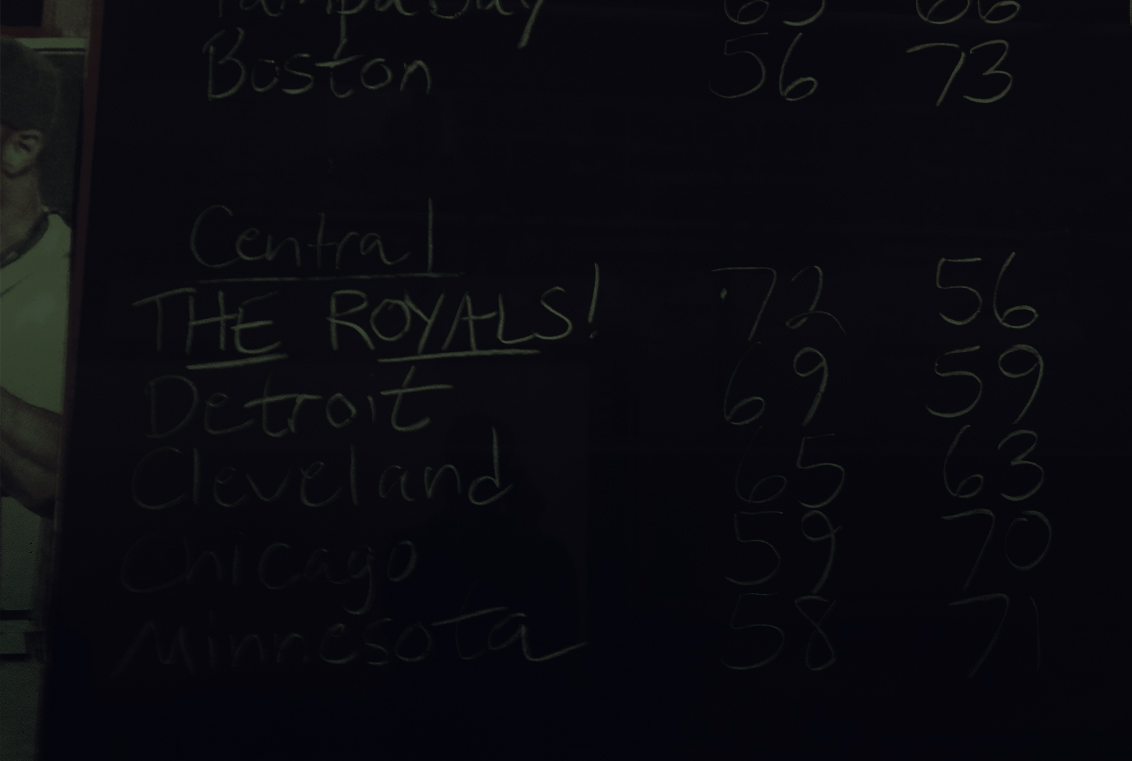 Tampa Bay 63 66
Boston 56 73
Central
THE ROYALS! 72 56
Detroit 69 59
Cleveland 65 63
Chicago 59 70
Minnesota 58 71